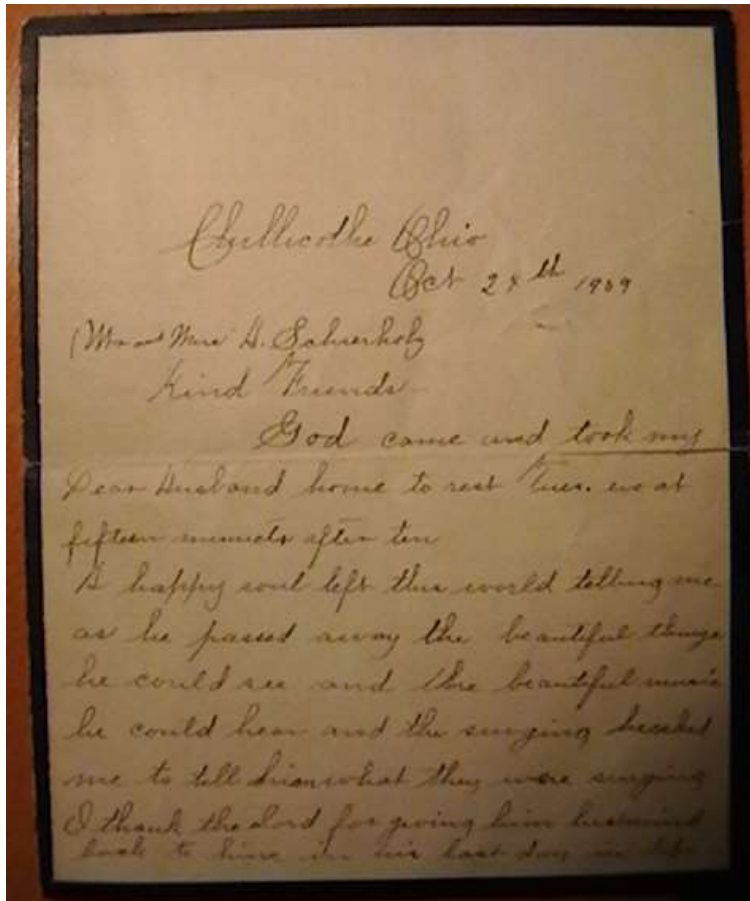 Chillicothe Ohio
Oct 28th 1909
Mr and Mrs H. Schierholz
Kind Friends
God came and took my
Dear Husband home to rest Tues. eve at
fifteen minuets after ten
A happy soul left this world telling me
as he passed away the beautiful things
he could see and the beautiful music
he could hear and the singing he asked
me to tell him what they were singing
I thank the Lord for giving him his mind
back to him in his last day in life